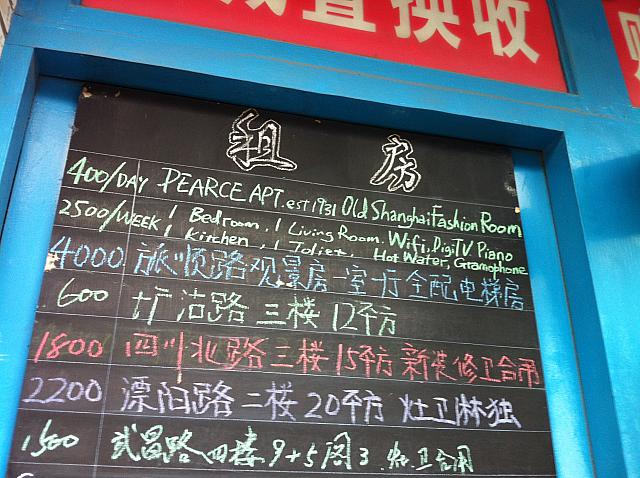 换收
租房
400/DAY PEARCE APT. est 1931 Old Shanghai Fashion Room
2500/WEEK 1 Bedroom, 1 Living Room. Wifi, Digi TV. Piano
1 Kitchen, 1 Toliet, Hot Water, Gramophone
4000 旅顺路观景房 一室一厅全配电梯房
600 圹沽路 三楼 12平方
1800 四川北路 三楼 15平方 新装修卫合用
2200 溧阳路 二楼 20平方 灶卫淋独
1500 武昌路 四楼 9+5阁3 灶卫合用